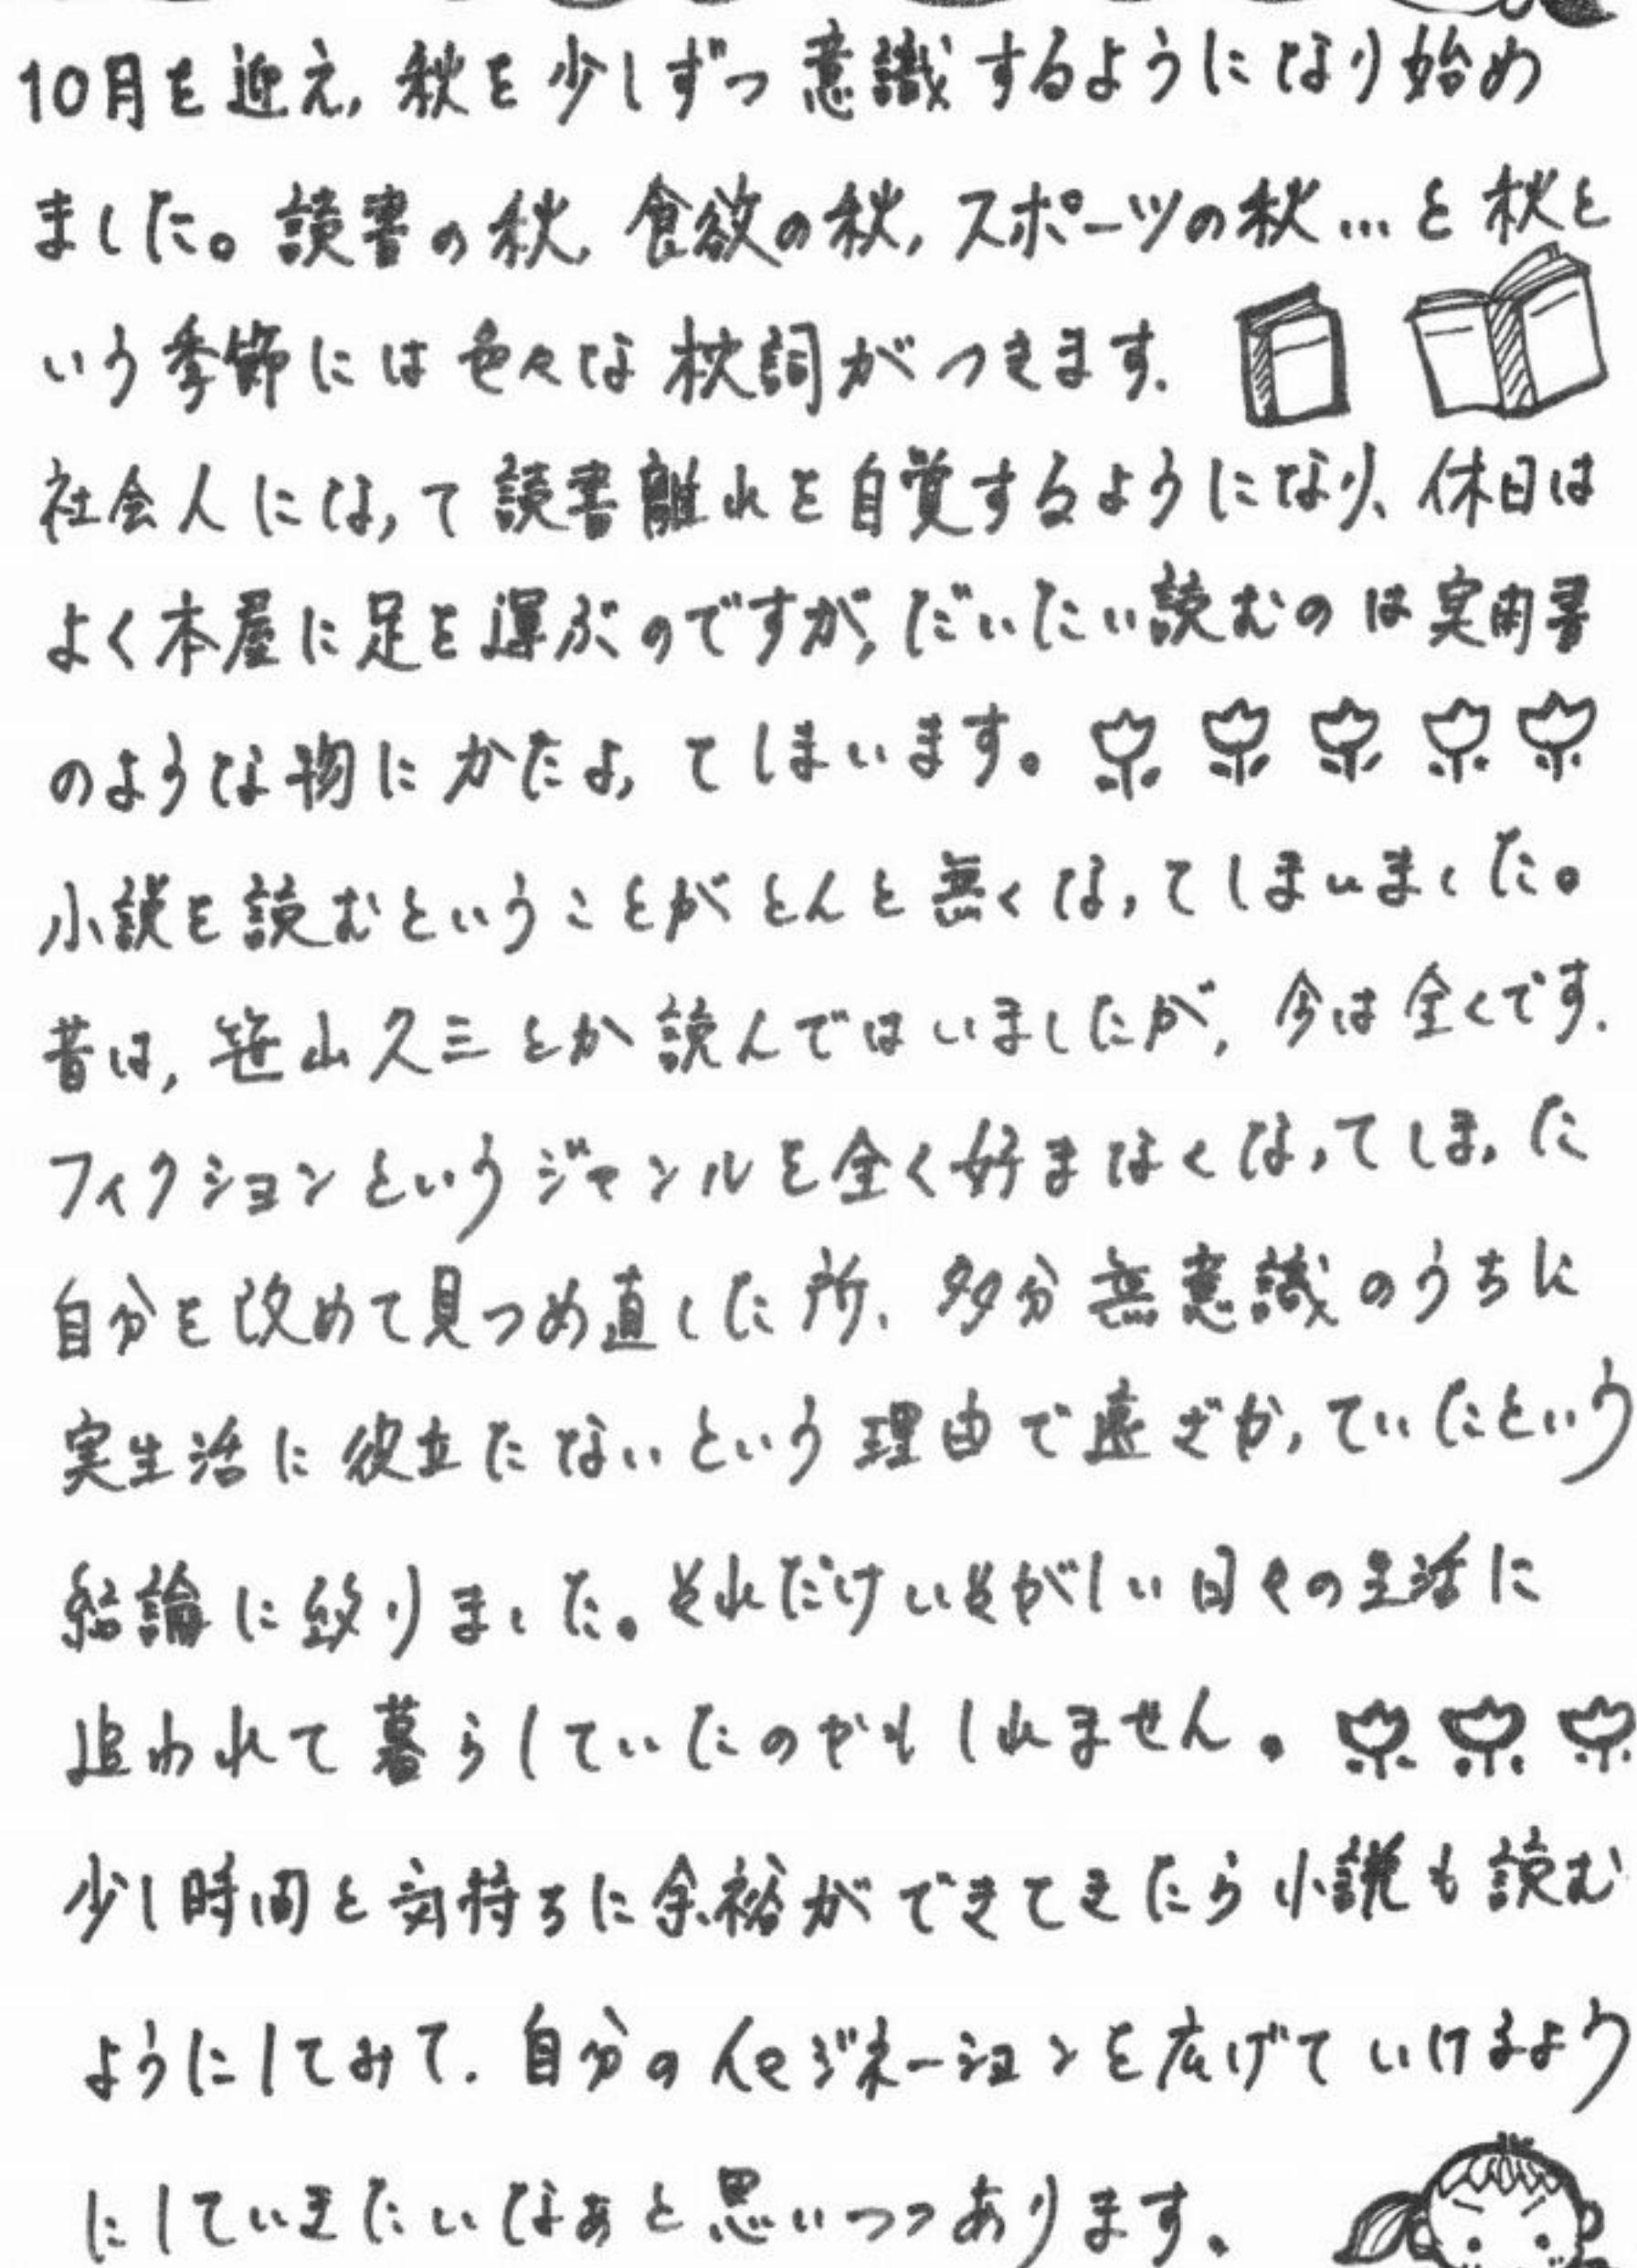 10月を迎え, 秋を少しずつ意識するようになり始め
ました。読書の秋, 食欲の秋, スポーツの秋…と秋と
いう季節には色々な枕詞がつきます.
社会人になって読書離れを自覚するようになり、休日は
よく本屋に足を運ぶのですが, だいたい読むのは実用書
のような物にかたよってしまいます。
小説を読むということがとんと無くなってしまいました。
昔は, 笹山久三とか読んではいましたが, 今は全くです.
フィクションというジャンルを全く好まなくなってしまった
自分を改めて見つめ直した所、多分無意識のうちに
実生活に役立たないという理由で遠ざかっていたという
結論に致りました。それだけいそがしい日々の生活に
追われて暮らしていたのかもしれません。
少し時間と気持ちに余裕ができてきたら小説も読む
ようにしてみて. 自分のイメジネーションを広げていけるよう
にしていきたいなぁと思いつつあります。